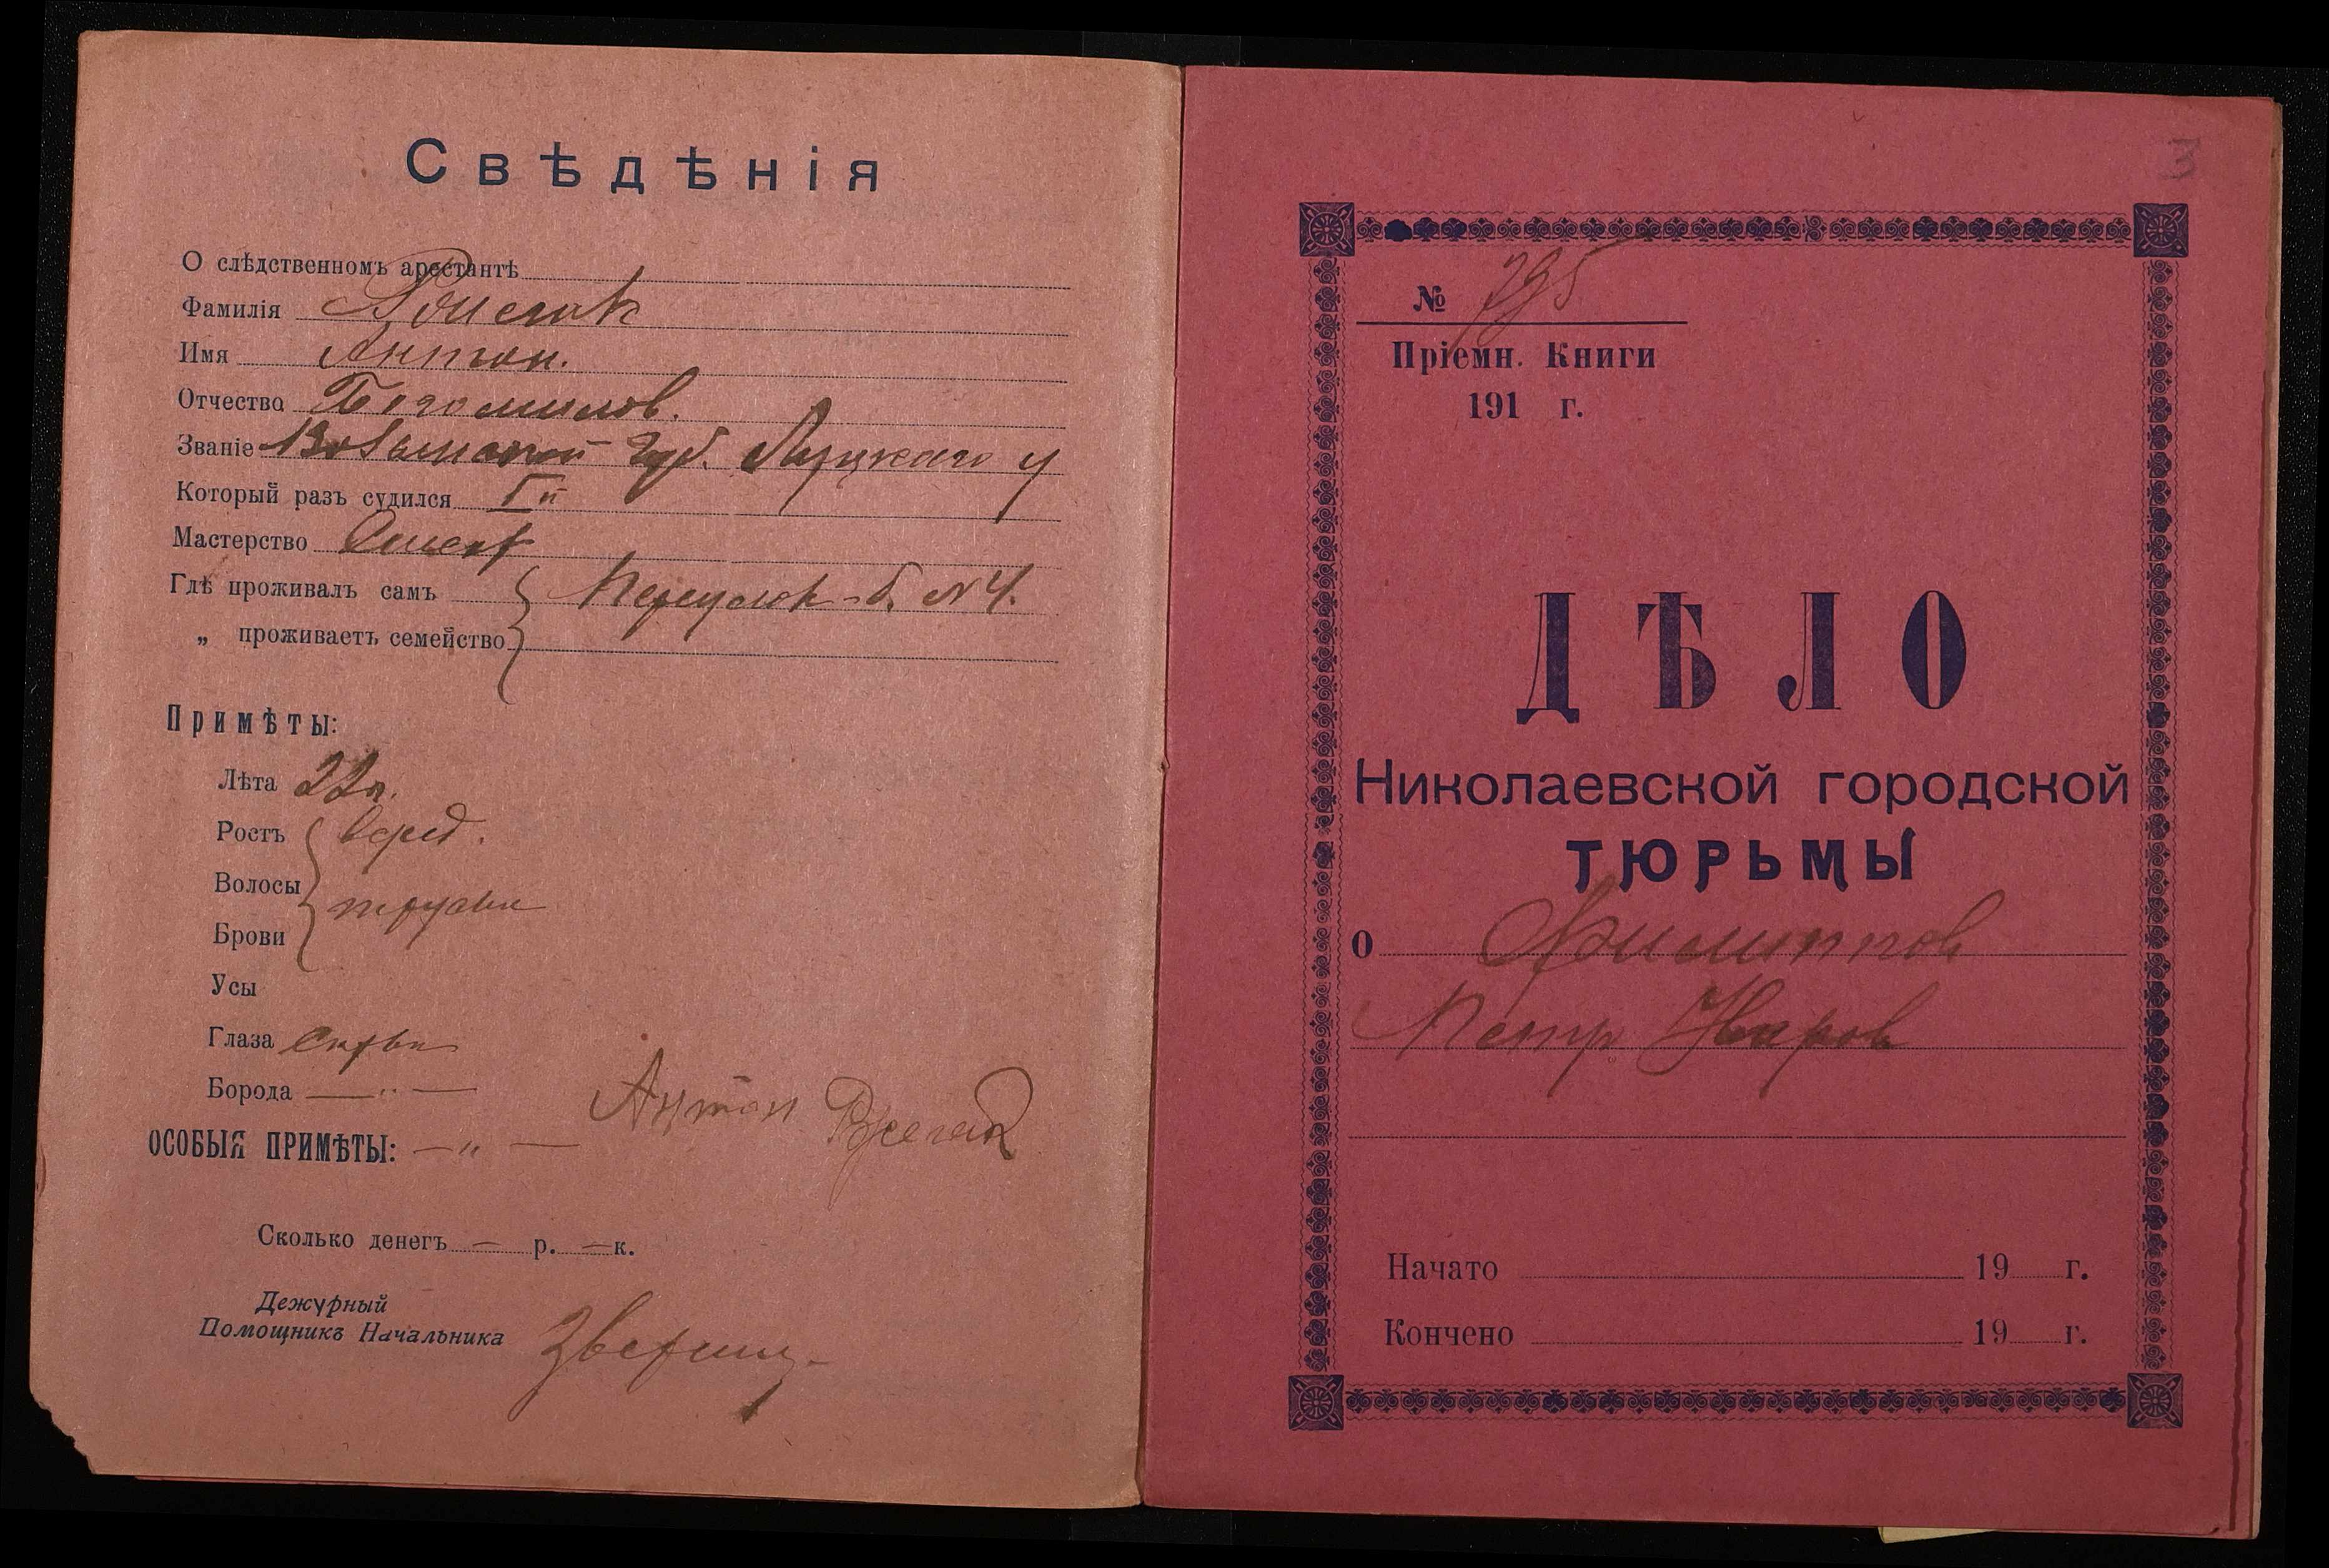 Свѣдѣнія
О слѣдственномъ арестантѣ
Фамилія
Имя Антон.
Отчество Богомилов.
Званіе Волынской губ. Луцкаго у
Который разъ судился I й
Мастерство
Гдѣ проживалъ самъ № 4.
„ проживаетъ семейство
Примѣты:
Лѣта 22 л.
Ростъ сред.
Волосы
русые
Брови
Усы
Глаза
Борода — „ —
ОСОБЫЯ ПРИМѢТЫ: — „ —
Антон
Сколько денегъ — р. — к.
Дежурный
Помощникъ Начальника
3
№ 795
Пріемн. Книги
191 г.
ДѢЛО
Николаевской городской
ТЮРЬМЫ
О Филиппов
Петр
Начато 19 г.
Кончено 19 г.